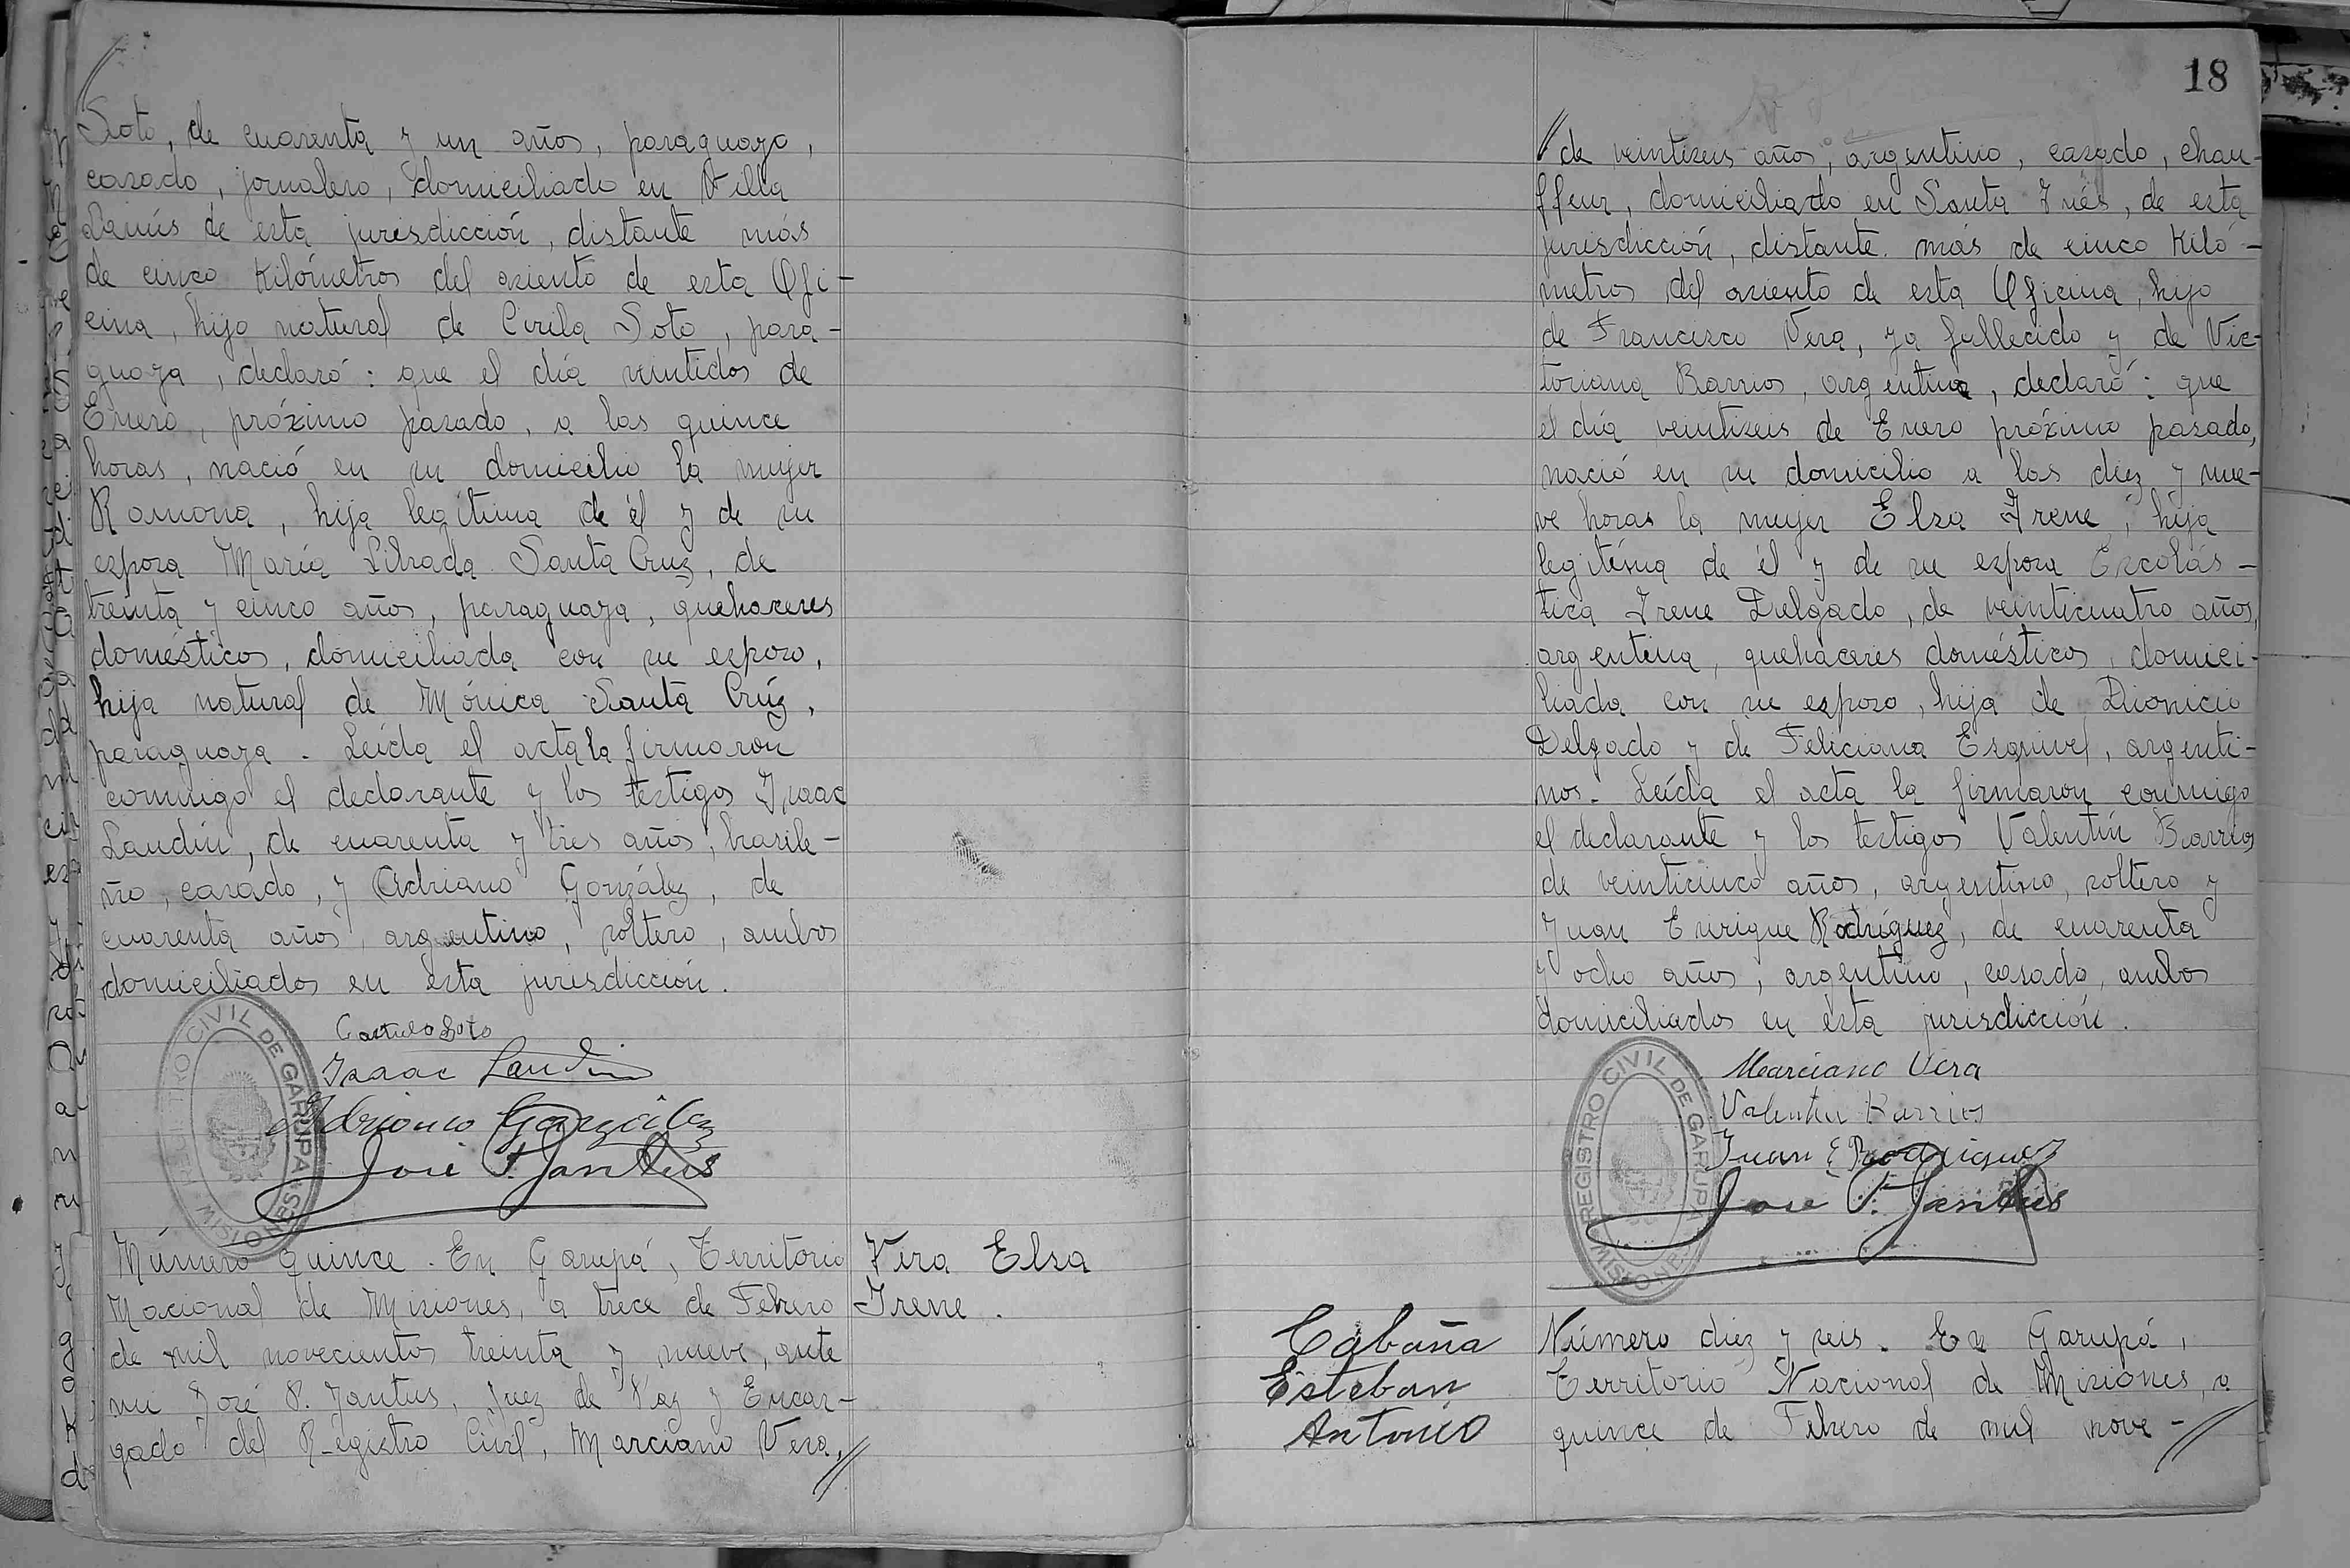 Soto, de cuarenta y un años, paraguayo,
casado, jornalero, domiciliado en Villa
Lanús de esta jurisdicción, distante más
de cinco kilómetros del asiento de esta Ofi-
cina, hijo natural de Cirila Soto, para-
guaya, declaró: que el día veintidos de
Enero, próximo pasado, a las quince
horas, nació en su domicilio la mujer
Ramona, hija legítima de él y de su
esposa María Librada Santa Cruz, de
treinta y cinco años, paraguaya, quehaceres
domésticos, domiciliada con su esposo,
hija natural de Mónica Santa Crúz,
paraguaya. Leída el acta la firmaron
conmigo el declarante y los testigos Isaac
Landin, de cuarenta y tres años, brasile-
ño, casado, y Adriano González, de
cuarenta años, argentino, soltero, ambos
domiciliados en esta jurisdicción.
Castulo Soto
Isaac Landin
Adriano González
José P. Jantus
REGISTRO CIVIL DE GARUPA
MISIONES
Número quince. En Garupá, Territorio
Nacional de Misiones, a trece de Febrero
de mil novecientos treinta y nueve, ante
mi José P. Jantus, Juez de Paz y Encar-
gado del Registro Civil, Marciano Vera,
Vera Elsa
Irene.
18
de veintiseis años, argentino, casado, chau-
ffeur, domiciliado en Santa Inés, de esta
jurisdicción, distante más de cinco kiló-
metros del asiento de esta Oficina, hijo
de Francisco Vera, ya fallecido y de Vic-
toriana Barrios, argentina, declaró: que
el día veintiseis de Enero próximo pasado,
nació en su domicilio a las diez y nue-
ve horas la mujer Elsa Irene, hija
legítima de él y de su esposa Escolás-
tica Irene Delgado, de veinticuatro años,
argentina, quehaceres domésticos, domici-
liada con su esposo, hija de Dionicio
Delgado y de Feliciana Esquivel, argenti-
nos. Leída el acta la firmaron conmigo
el declarante y los testigos Valentín Barrios
de veinticinco años, argentino, soltero y
Juan Enrique Rodríguez, de cuarenta
y ocho años, argentino, casado, ambos
domiciliados en ésta jurisdicción.
Marciano Vera
Valentin Barrios
Juan E Rodriguez
José P. Jantus
REGISTRO CIVIL DE GARUPA
MISIONES
Cabaña
Esteban
Antonio
Número diez y seis. En Garupá,
Territorio Nacional de Misiones, a
quince de Febrero de mil nove-